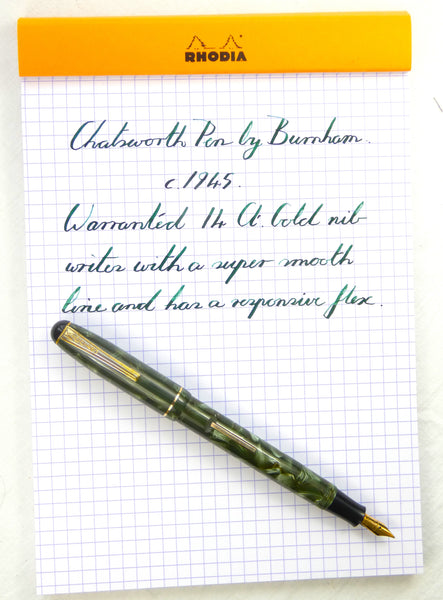 RHODIA
Chatsworth Pen by Burnham.
c.1945.
Warranted 14 Ct. Gold nib
writes with a super smooth
line and has a responsive flex.